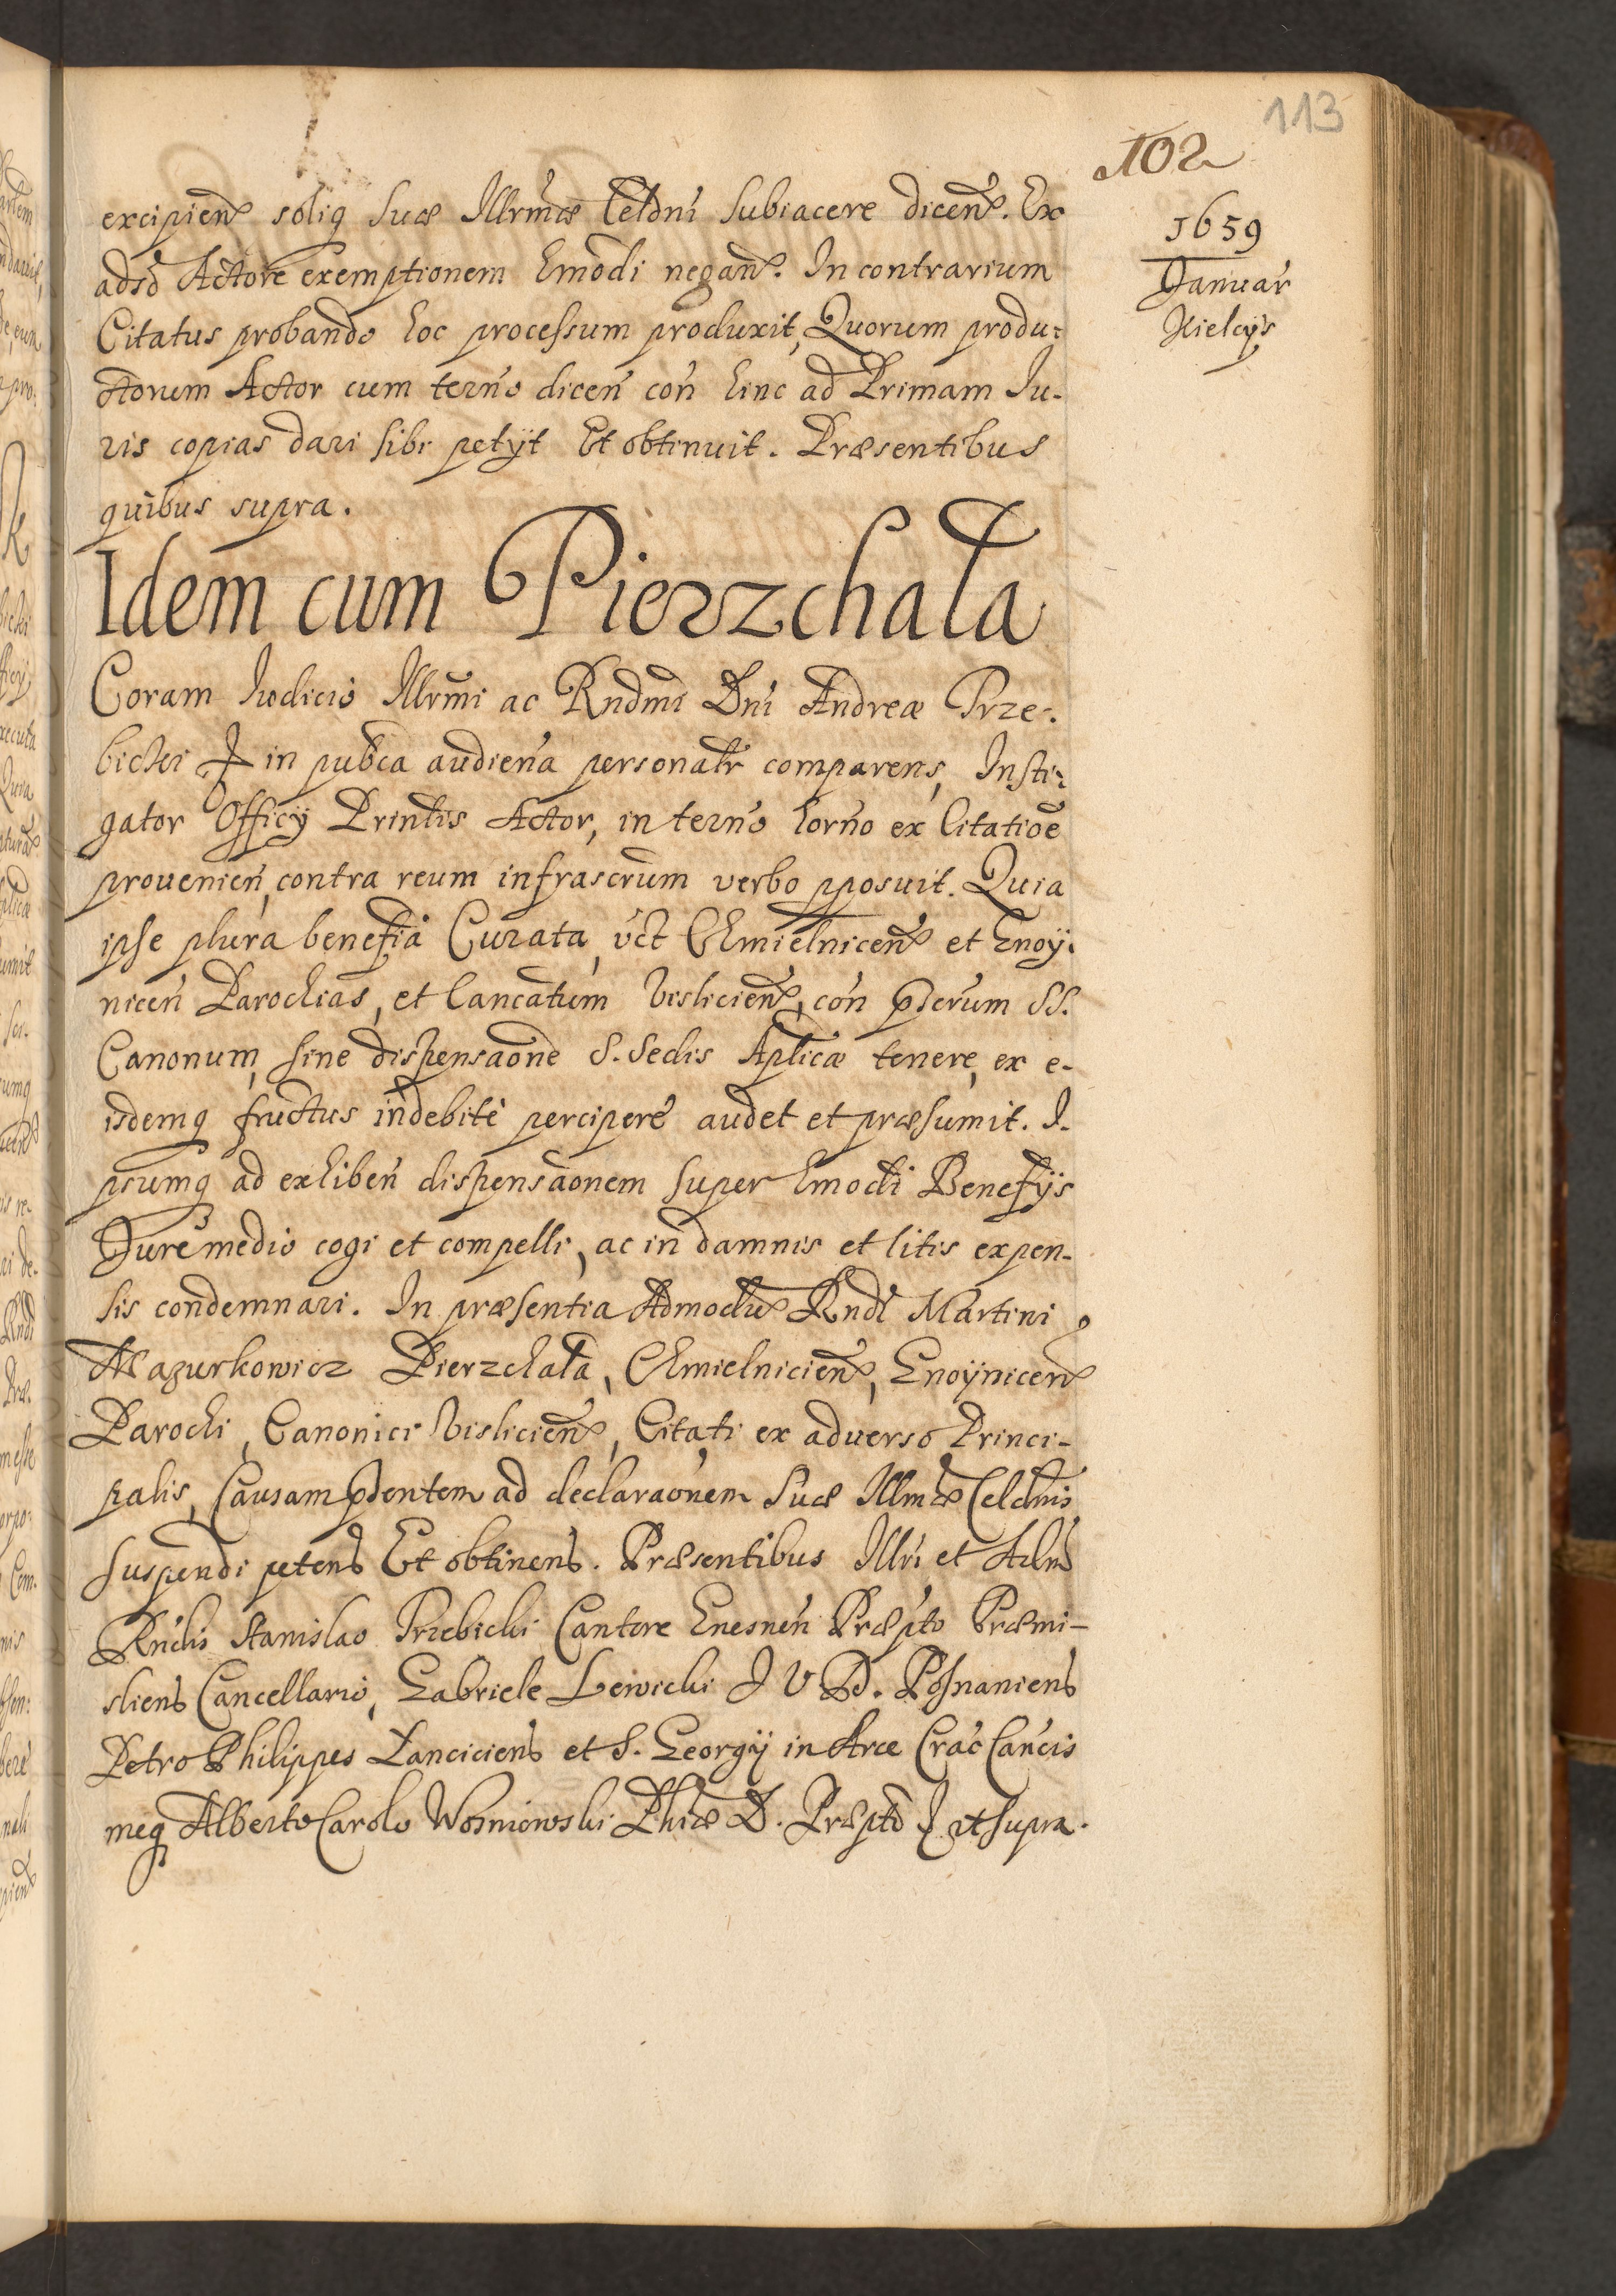 113
102
1659
Januar
Kielcijs
excipien soliq suæ Illrmæ Celdni subiacere dicen. Ex
adso Actore exemptionem hmodi negan. In contrarium
Citatus probando hoc processum produxit, Quorum produ:
ctorum Actor cum termo dicen con hinc ad Primam Iu-
ris copias dari sibi petijt Et obtinuit. Præsentibus
quibus supra.
Idem cum Pierzchała
Coram Iudicio Illrmi ac Rndmi Dni Andreæ Trze-
bicki in publca audiena personalr comparens, Insti:
gator Officij Printis Actor, in termo horno ex Citatioe
prouenien, contra reum infrascrum verbo pposuit. Quia
ipse plura benefia Curata, vct Chmielnicen et Gnoij:
nicen Parochias, et Cancatum Vislicien, con pderum SS.
Canonum, sine dispensaone S. Sedis Aplicæ tenere, ex e-
isdemq fructus indebite percipere audet et præsumit. I-
psumq ad exhiben dispensaonem super hmodi Benefijs
Jure medio cogi et compelli, ac in damnis et litis expen-
sis condemnari. In præsentia Admodu Rndi Martini
Mazurkowicz Pierzchała, Chmielnicien, Gnoijnicen
Parochi, Canonici Vislicien, Citati ex aduerso Princi-
palis, Causam pdentem ad declaraonem Suæ Illmæ Celdnis
suspendi petens Et obtinens. Præsentibus Illri et Adm
Rndis Stanislao Trzebicki Cantore Gnesnen Præpto Præmi-
sliens Cancellario, Gabriele Lewicki J V D. Posnaniens
Petro Philippes Lanciciens et S. Georgij in Arce Crac Cancis
meq Alberto Carolo Wosniowski Phiæ D. Præpto ut supra.